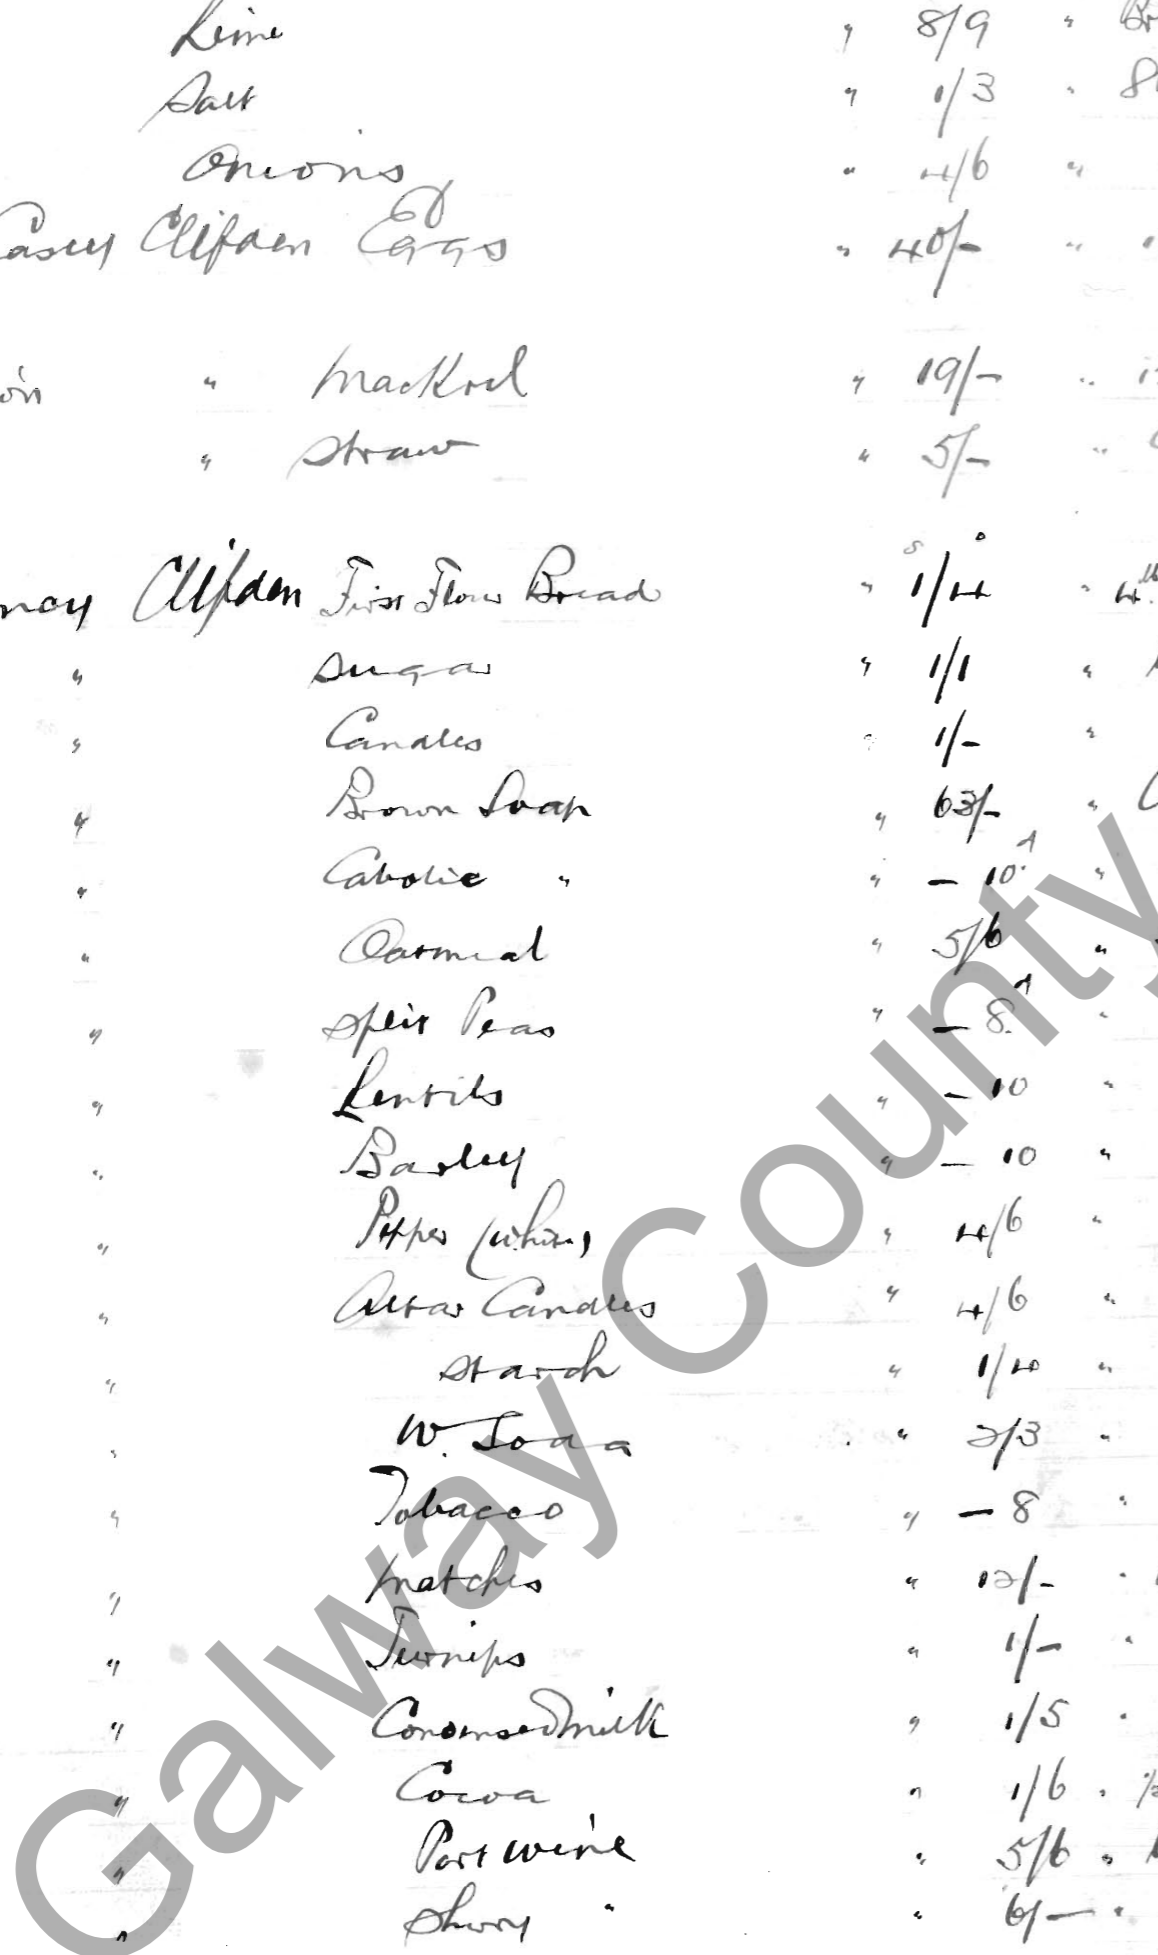 Lime " 8/9 "
Salt " 1/3 "
Onions " 4/6 "
Casey Clifden Eggs " 40/- "
" Mackrel " 19/- "
" Straw " 5/- "
s d
Clifden First Flour Bread " 1/4 " 4th
" Sugar " 1/1 "
" Candles " 1/- "
" Brown Soap " 63/- "
" Cabolic " " - 10d "
" Oatmeal " 5/6 "
" Split Peas " - 8d "
" Lentils " - 10 "
" Barley " - 10 "
" Pepper (white) " 4/6 "
" Altar Candles " 4/6 "
" Starch " "
" W. Soda " 2/3 "
" Tobacco " - 8 "
" Matches " 12/- "
" Turnips " 1/- "
" Condensed Milk " 1/5 "
" Cocoa " 1/6 "
" Port wine " 5/6 "
" Sherry " " 6/- "
Galway County